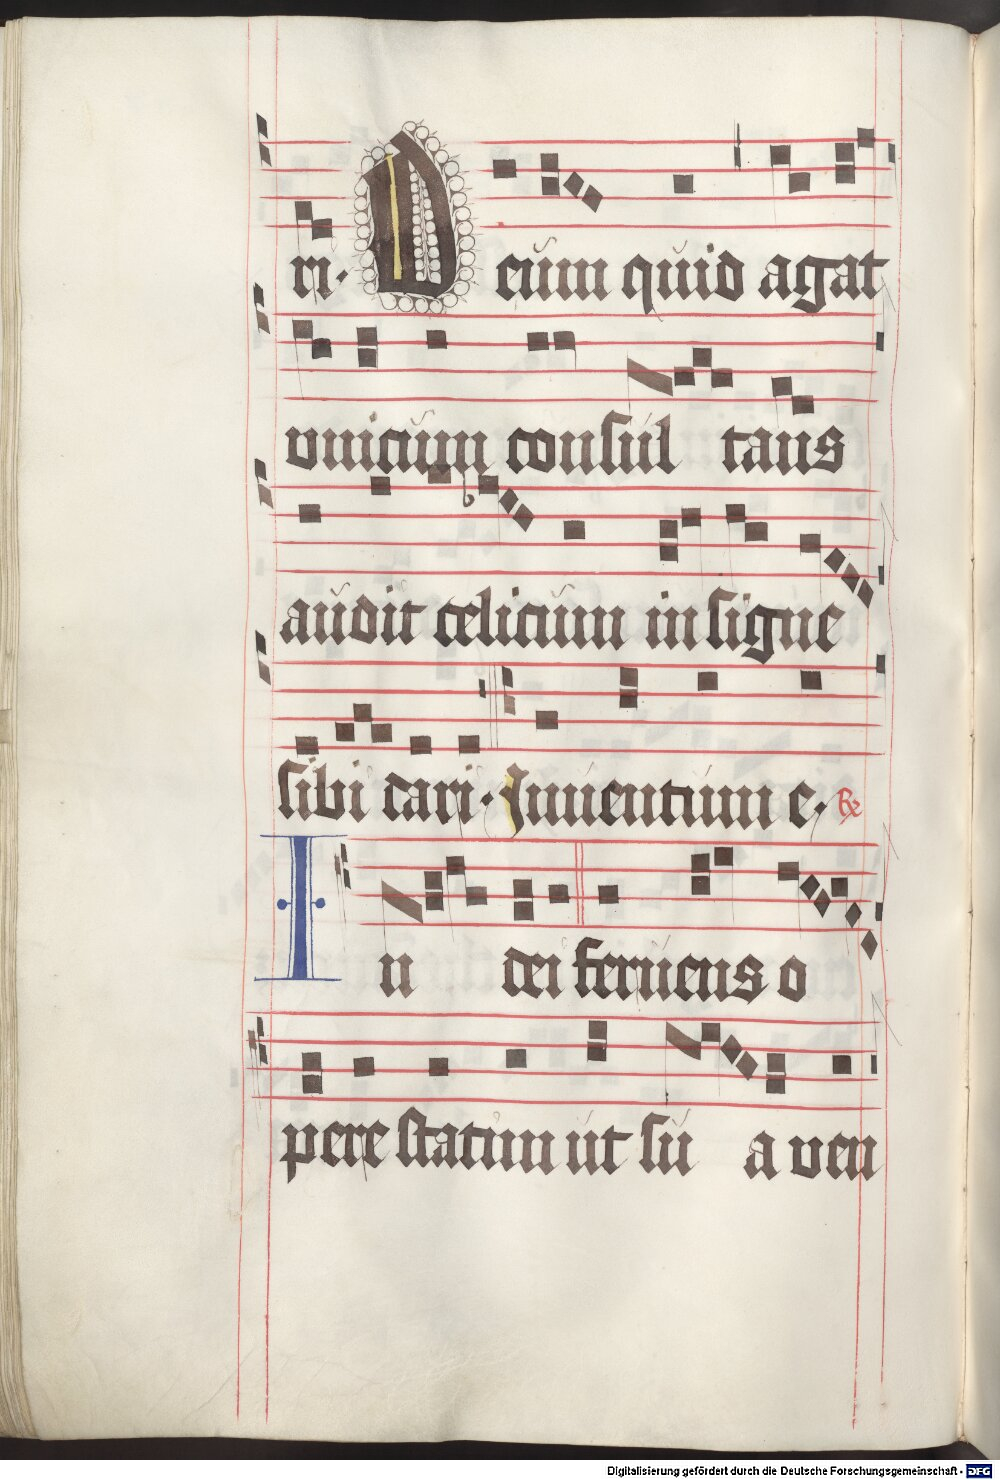 ri· Deum quid agat
vnicum consul tans
audit celicum insigne
sibi dari· Inuentum e· R
In dei feruens o
pere statim ut su a ven
Digitalisierung gefördert durch die Deutsche Forschungsgemeinschaft - DFG